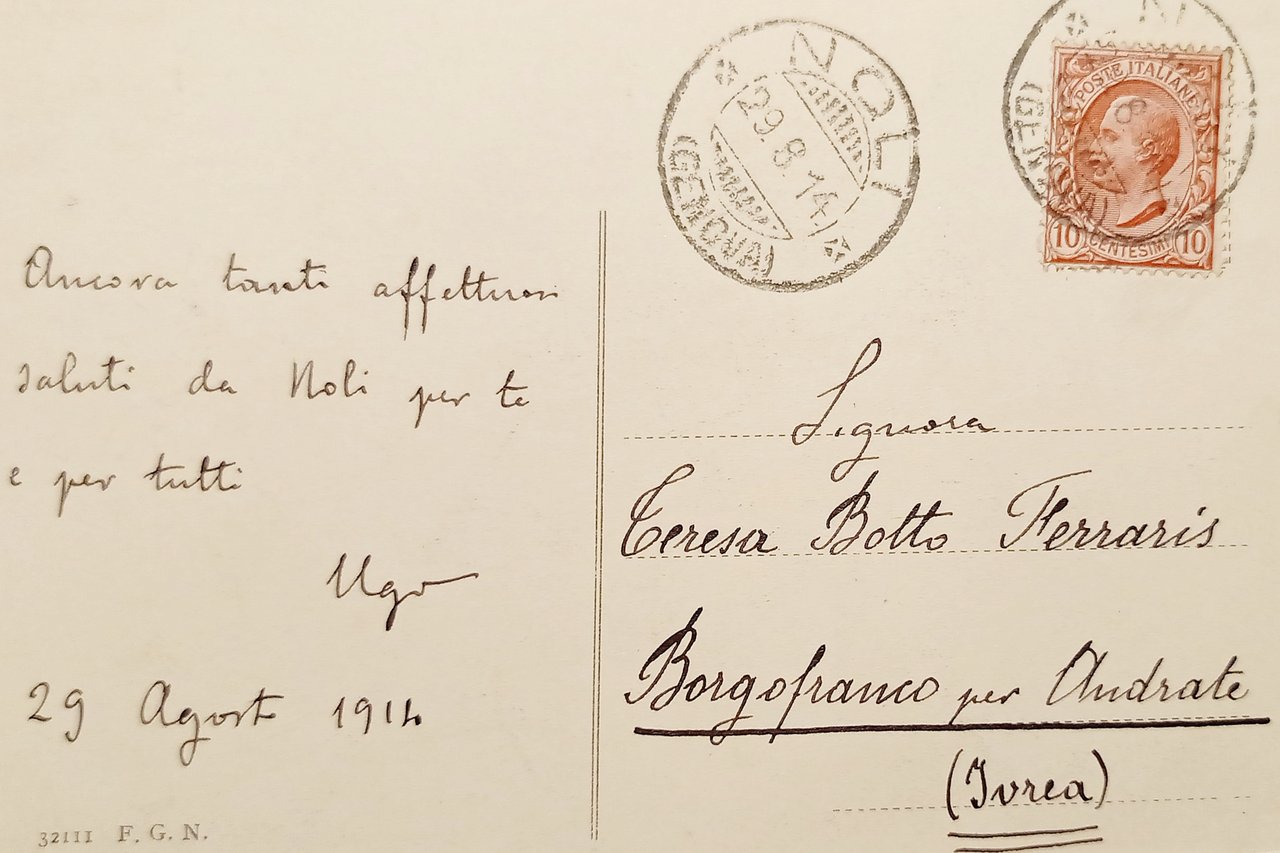 Ancora tanti affettuosi
saluti da Noli per te
e per tutti
Ugo
29 Agosto 1914
32111 F. G. N.
NOLI
29.8.14.
(GENOVA)
POSTE ITALIANE
10 CENTESIMI 10
Signora
Teresa Botto Ferraris
Borgofranco per Andrate
(Ivrea)